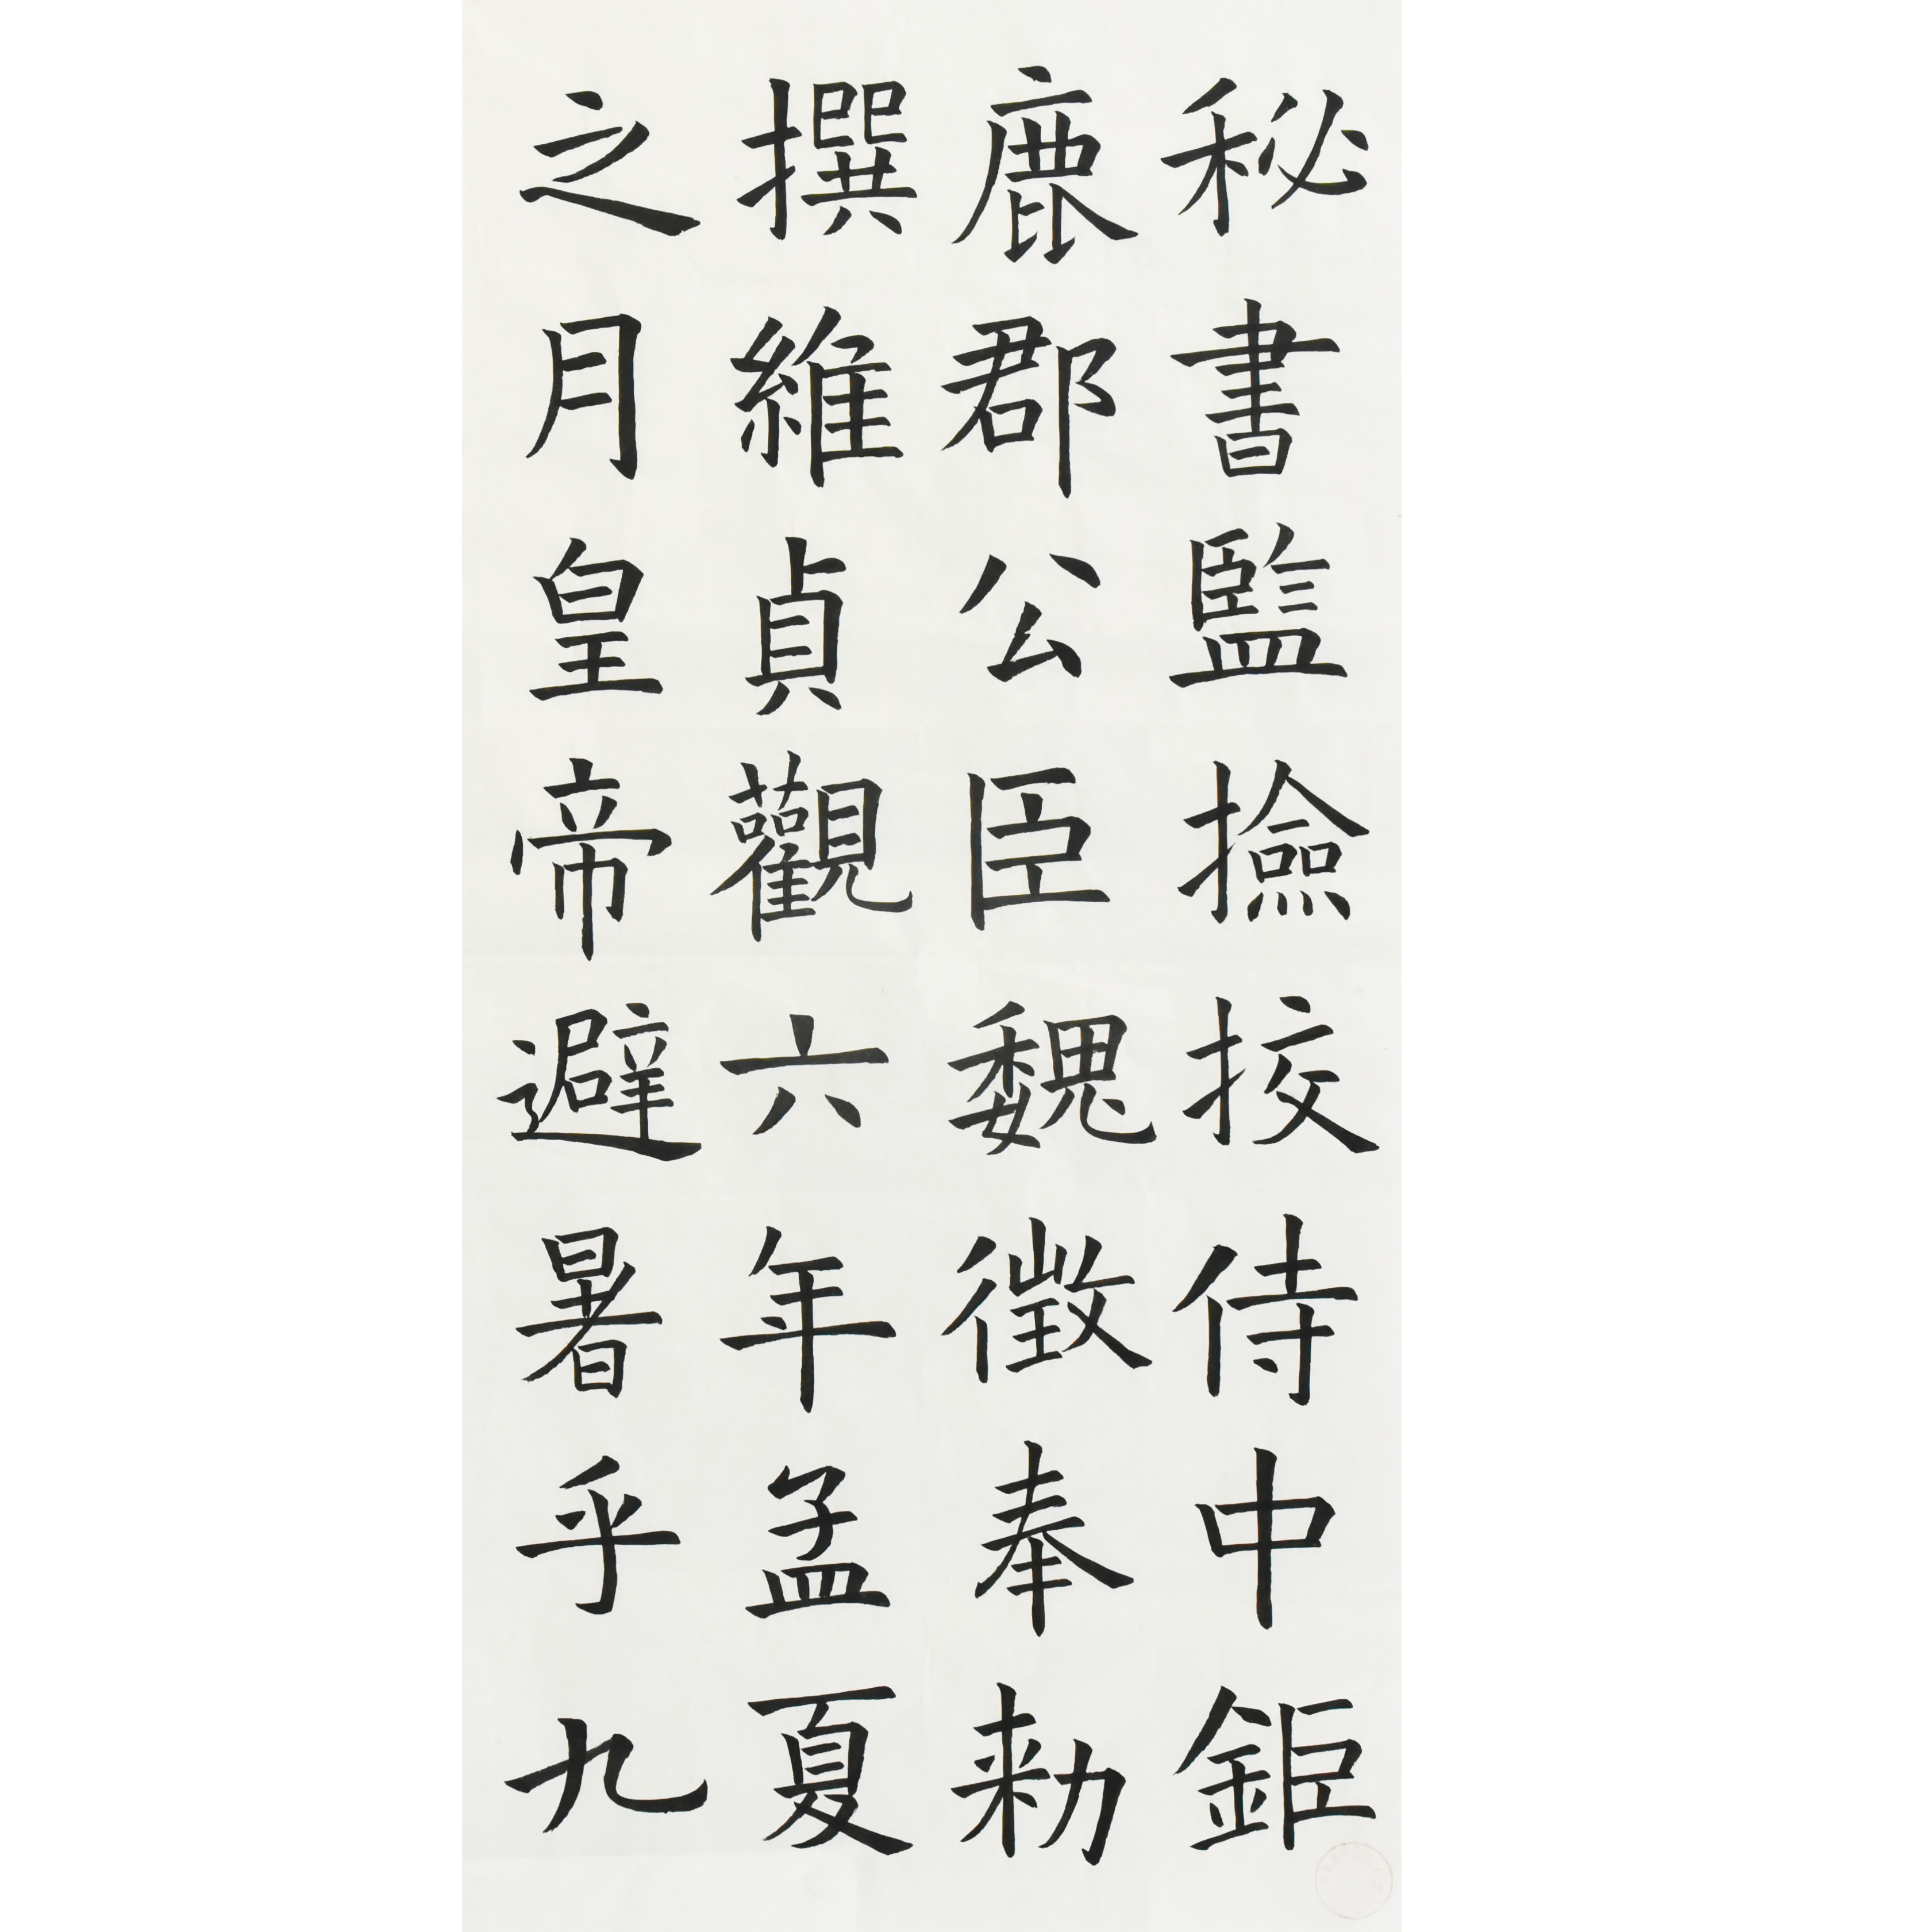 秘書監撿挍侍中鉅
鹿郡公臣魏徵奉勑
撰維貞觀六年孟夏
之月皇帝避暑乎九